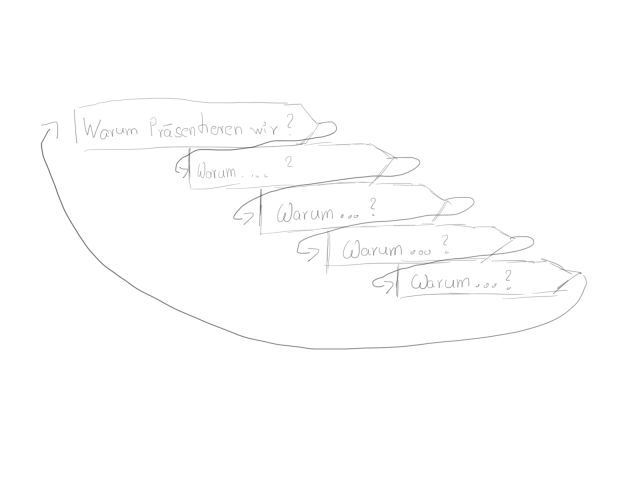 Warum Präsentieren wir ?
Warum .... ?
Warum ... ?
Warum ... ?
Warum ... ?